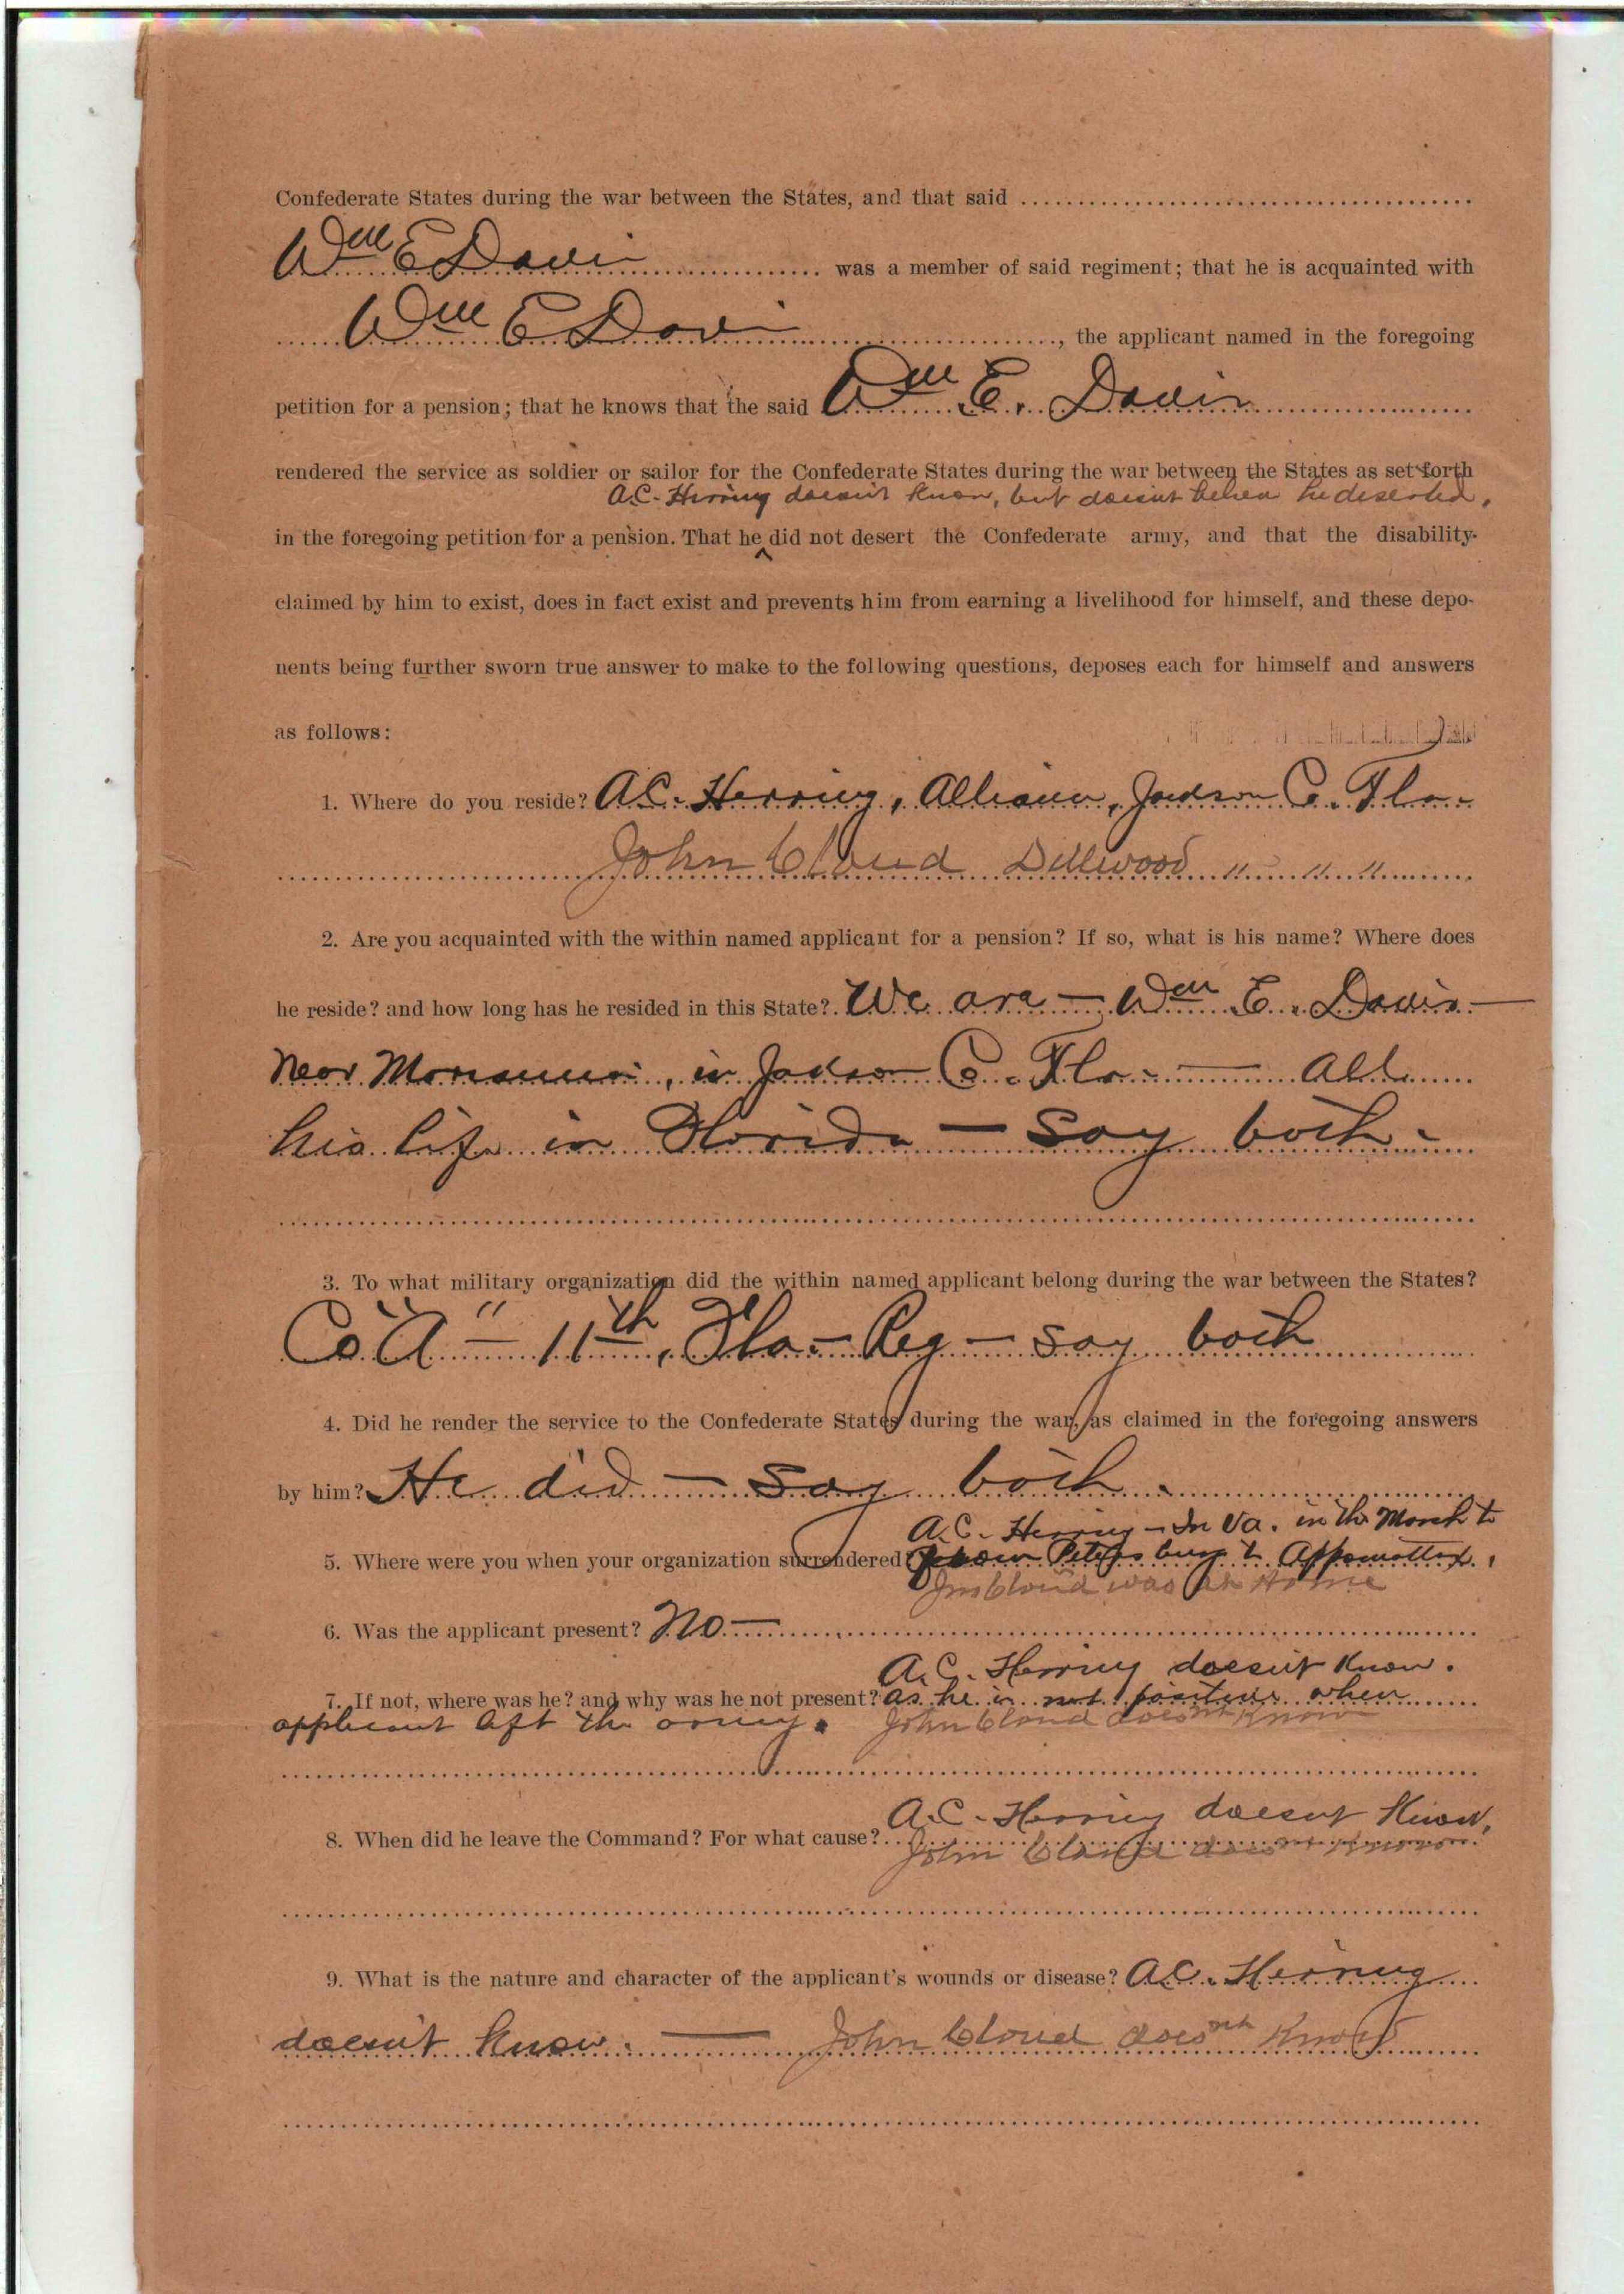 Confederate States during the war between the States, and that said
Wm E Davis was a member of said regiment; that he is acquainted with
Wm E Davis, the applicant named in the foregoing
petition for a pension; that he knows that the said Wm E. Davis
rendered the service as soldier or sailor for the Confederate States during the war between the States as set forth
A.C. Herring doesn't know, but doesn't believe he deserted.
in the foregoing petition for a pension. That he ^ did not desert the Confederate army, and that the disability
claimed by him to exist, does in fact exist and prevents him from earning a livelihood for himself, and these depo-
nents being further sworn true answer to make to the following questions, deposes each for himself and answers
as follows:
1. Where do you reside? A.C. Herring, Alliance, Jackson Co. Fla.
John Cloud Dellwood " " "
2. Are you acquainted with the within named applicant for a pension? If so, what is his name? Where does
he reside? and how long has he resided in this State? We are — Wm E. Davis —
Near Marianna, in Jackson Co. Fla. — All
his life in Florida — Say both.
3. To what military organization did the within named applicant belong during the war between the States?
Co "A" — 11th, Fla. Reg — say both
4. Did he render the service to the Confederate States during the war, as claimed in the foregoing answers
by him? He did — Say both.
A.C. Herring — In Va. in the March to
5. Where were you when your organization surrendered? from Petersburg to Appomattox.
Jno Cloud was at Home
6. Was the applicant present? No —
A.C. Herring doesn't know.
7. If not, where was he? and why was he not present? as he is not positive when
applicant left the army. John Cloud doesnt Know
8. When did he leave the Command? For what cause? A.C. Herring doesn't know.
John Cloud does not Know
9. What is the nature and character of the applicant's wounds or disease? A.C. Herring
doesn't know. — John Cloud does not Know